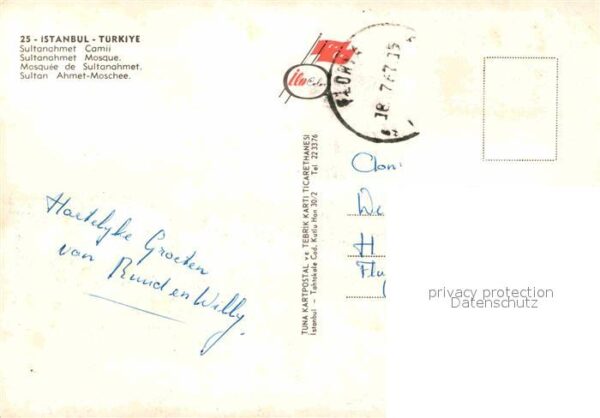 25 - İSTANBUL - TÜRKİYE
Sultanahmet Camii
Sultanahmet Mosque.
Mosquée de Sultanahmet.
Sultan Ahmet-Moschee.
18.7.67.15
Hartelijke Groeten
van Ruud en Willy.
TUNA KARTPOSTAL ve TEBRİK KARTI TİCARETHANESİ
İstanbul - Tahtakale Cad. Kutlu Han 30/2 Tel 223376
We
H
privacy protection
Datenschutz